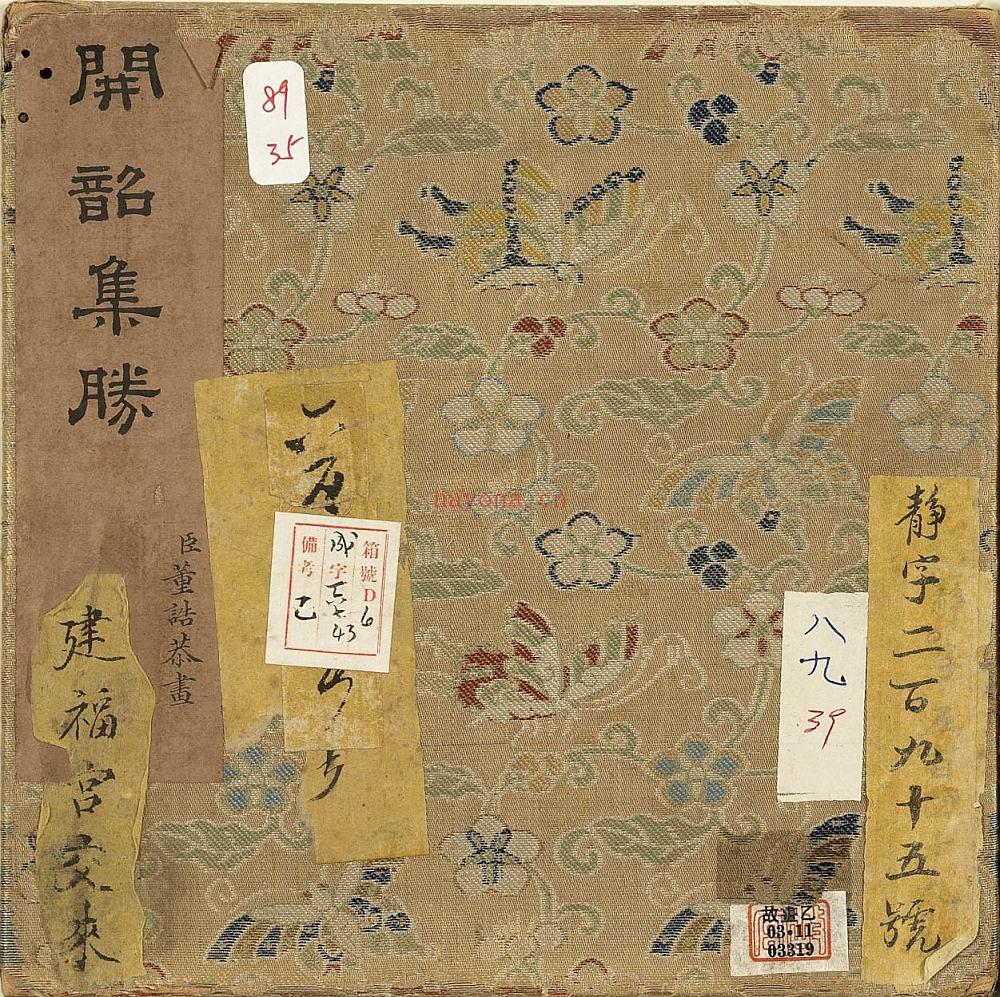 開韶集勝
臣董誥恭畫
建福宮交來
89
35
箱號D6
成字
43
備考乙
nayona.cn
八九
39
靜字二百九十五號
故畫乙
03-11
03319